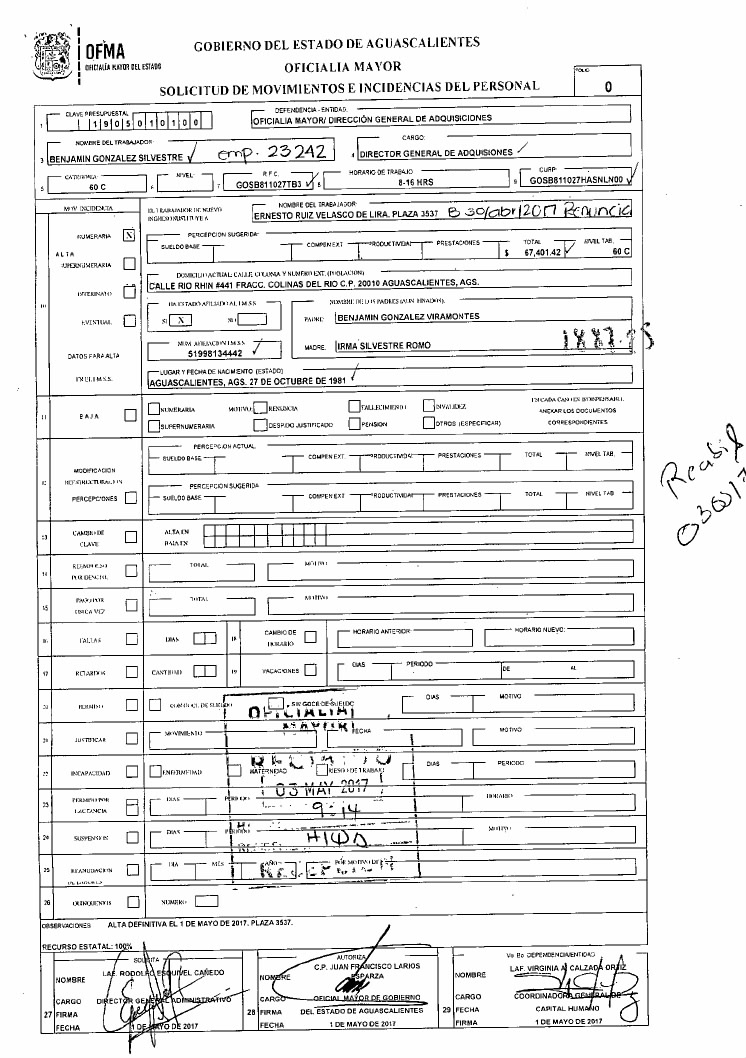 OFMA
OFICIALÍA MAYOR DEL ESTADO
GOBIERNO DEL ESTADO DE AGUASCALIENTES
OFICIALIA MAYOR
SOLICITUD DE MOVIMIENTOS E INCIDENCIAS DEL PERSONAL
FOLIO
0
CLAVE PRESUPUESTAL
1 1 9 0 5 0 1 0 1 0 0
DEPENDENCIA - ENTIDAD:
OFICIALIA MAYOR/ DIRECCIÓN GENERAL DE ADQUISICIONES
NOMBRE DEL TRABAJADOR
3 BENJAMIN GONZALEZ SILVESTRE emp. 23242
CARGO:
4 DIRECTOR GENERAL DE ADQUISIONES
5 CATEGORIA: 60 C
6 NIVEL:
7 R.F.C. GOSB811027TB3
8 HORARIO DE TRABAJO 8-16 HRS
9 CURP: GOSB811027HASNLN00
MOV. INCIDENCIA
EL TRABAJADOR DE NUEVO INGRESO SUSTITUYE A
NOMBRE DEL TRABAJADOR:
ERNESTO RUIZ VELASCO DE LIRA. PLAZA 3537 B 30/abr/2017 Renuncia
10
ALTA
NUMERARIA X
SUPERNUMERARIA
INTERINATO
EVENTUAL
DATOS PARA ALTA
EN EL I.M.S.S.
PERCEPCION SUGERIDA:
SUELDO BASE COMPEN EXT PRODUCTIVIDAD PRESTACIONES TOTAL NIVEL TAB.
$ 67,401.42 60 C
DOMICILIO ACTUAL: CALLE COLONIA Y NUMERO EXT. (POBLACION)
CALLE RIO RHIN #441 FRACC. COLINAS DEL RIO C.P. 20010 AGUASCALIENTES, AGS.
HA ESTADO AFILIADO AL I.M.S.S.
SI X NO
NOMBRE DE LOS PADRES (AUN FINADOS):
PADRE: BENJAMIN GONZALEZ VIRAMONTES
MADRE: IRMA SILVESTRE ROMO
NUM. AFILIACION I.M.S.S
51998134442
LUGAR Y FECHA DE NACIMIENTO (ESTADO)
AGUASCALIENTES, AGS. 27 DE OCTUBRE DE 1981
11 BAJA
NUMERARIA MOTIVO: RENUNCIA FALLECIMIENTO INVALIDEZ
SUPERNUMERARIA DESPIDO JUSTIFICADO PENSION OTROS (ESPECIFICAR)
EN CADA CASO ES INDISPENSABLE ANEXAR LOS DOCUMENTOS CORRESPONDIENTES
12 MODIFICACION
RESTRUCTURACION
PERCEPCIONES
PERCEPCION ACTUAL
SUELDO BASE COMPEN EXT. PRODUCTIVIDAD PRESTACIONES TOTAL NIVEL TAB.
PERCEPCION SUGERIDA
SUELDO BASE COMPEN EXT. PRODUCTIVIDAD PRESTACIONES TOTAL NIVEL TAB.
13 CAMBIO DE CLAVE ALTA EN BAJA EN
14 TOTAL MOTIVO
15 PAGO POR UNICA VEZ TOTAL MOTIVO
16 FALTAS DIAS
18 CAMBIO DE HORARIO HORARIO ANTERIOR: HORARIO NUEVO:
17 RETARDOS CANTIDAD
19 VACACIONES DIAS PERIODO DE AL
PERMISO CON GOCE DE SUELDO SIN GOCE DE SUELDO DIAS MOTIVO
JUSTIFICAR MOVIMIENTO FECHA MOTIVO
22 INCAPACIDAD ENFERMEDAD MATERNIDAD RIESGO DE TRABAJO DIAS PERIODO
23 PERMISO POR LACTANCIA DIAS PERIODO HORARIO
24 SUSPENSION DIAS PERIODO MOTIVO
25 REANUDACION DE LABORES DIA MES AÑO POR MOTIVO DE
26 QUINQUENIOS NUMERO
OFICIALIA
MAYOR
03 MAY 2017
9:14
OBSERVACIONES ALTA DEFINITIVA EL 1 DE MAYO DE 2017. PLAZA 3537.
RECURSO ESTATAL: 100%
SOLICITA
NOMBRE LAE. RODOLFO ESQUIVEL CAÑEDO
CARGO DIRECTOR GENERAL ADMINISTRATIVO
27 FIRMA
FECHA 1 DE MAYO DE 2017
AUTORIZA
NOMBRE C.P. JUAN FRANCISCO LARIOS ESPARZA
CARGO OFICIAL MAYOR DE GOBIERNO
28 FIRMA DEL ESTADO DE AGUASCALIENTES
FECHA 1 DE MAYO DE 2017
Vo Bo DEPENDENCIA/ENTIDAD
NOMBRE LAF. VIRGINIA A. CALZADA ORTIZ
CARGO COORDINADORA GENERAL DE
29 FIRMA CAPITAL HUMANO
FECHA 1 DE MAYO DE 2017